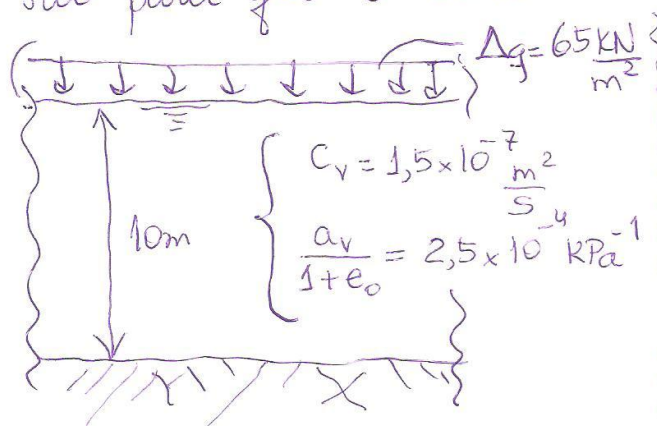 Δq = 65 kN/m²
10m
C_v = 1,5×10⁻⁷ m²/S
a_v/1+e₀ = 2,5×10⁻⁴ kPa⁻¹